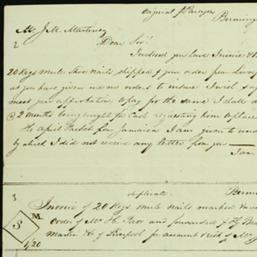 original p Paragon
Birming
Mr J. M. Martinez
2
Dear Sir,
Inclosed you have Invoice &
20 Kegs mule Shoe Nails shipped p your order from Liverp
as you have given no new orders to induce I wish
meet your approbation & pay for the same I shall
@ 2 Months being bought for Cash requesting you to place
the April Packet for Jamaica I am given to und
by which I did not receive any letter from you
I am
duplicate
Birm
Invoice of 20 Kegs mule Nails marked
S M
order of Mr H. and forwarded
1/20 Master of Liverpool for account & risk of Mr